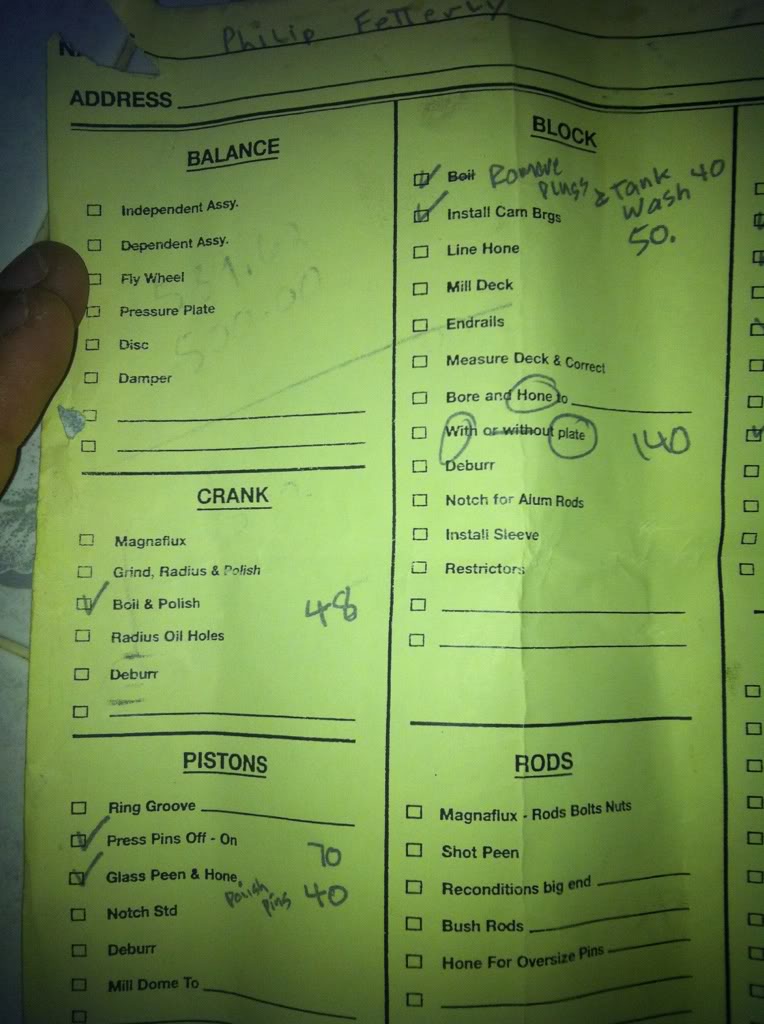 Philip Fetterly
ADDRESS
BALANCE
Independent Assy.
Dependent Assy.
Fly Wheel
Pressure Plate
Disc
Damper
CRANK
Magnaflux
Grind, Radius & Polish
Boil & Polish 48
Radius Oil Holes
Deburr
PISTONS
Ring Groove
Press Pins Off - On 70
Glass Peen & Hone
Polish Pins 40
Notch Std
Deburr
Mill Dome To
BLOCK
Boil Romove
Plugs & Tank 40
Wash
Install Cam Brgs 50.
Line Hone
Mill Deck
Endrails
Measure Deck & Correct
Bore and Hone to
With or without plate 140
Deburr
Notch for Alum Rods
Install Sleeve
Restrictors
RODS
Magnaflux - Rods Bolts Nuts
Shot Peen
Reconditions big end
Bush Rods
Hone For Oversize Pins